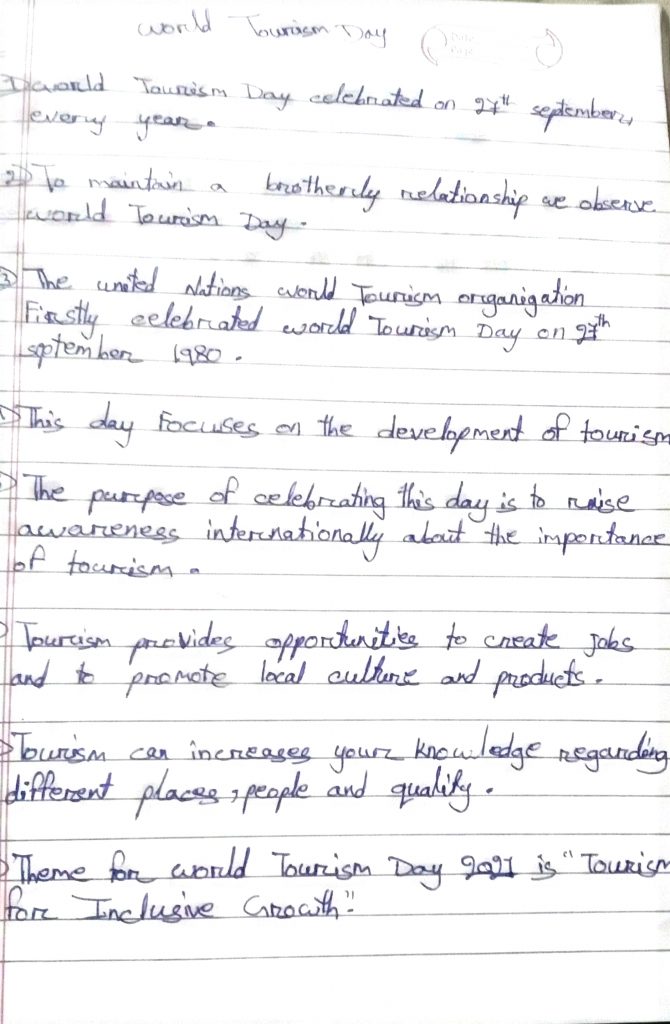 World Tourism Day
1) World Tourism Day celebrated on 27th september,
every year.
2) To maintain a brotherly relationship we observe
world Tourism Day.
3) The united Nations world Tourism organigation
Firstly celebrated world Tourism Day on 27th
september 1980.
This day Focuses on the development of tourism
The purpose of celebrating this day is to raise
awareness internationally about the importance
of tourism.
Tourism provides opportunities to create jobs
and to promote local culture and products.
Tourism can increases your knowledge regarding
different places, people and quality.
Theme for world Tourism Day 2021 is "Tourism
for Inclusive Growth".